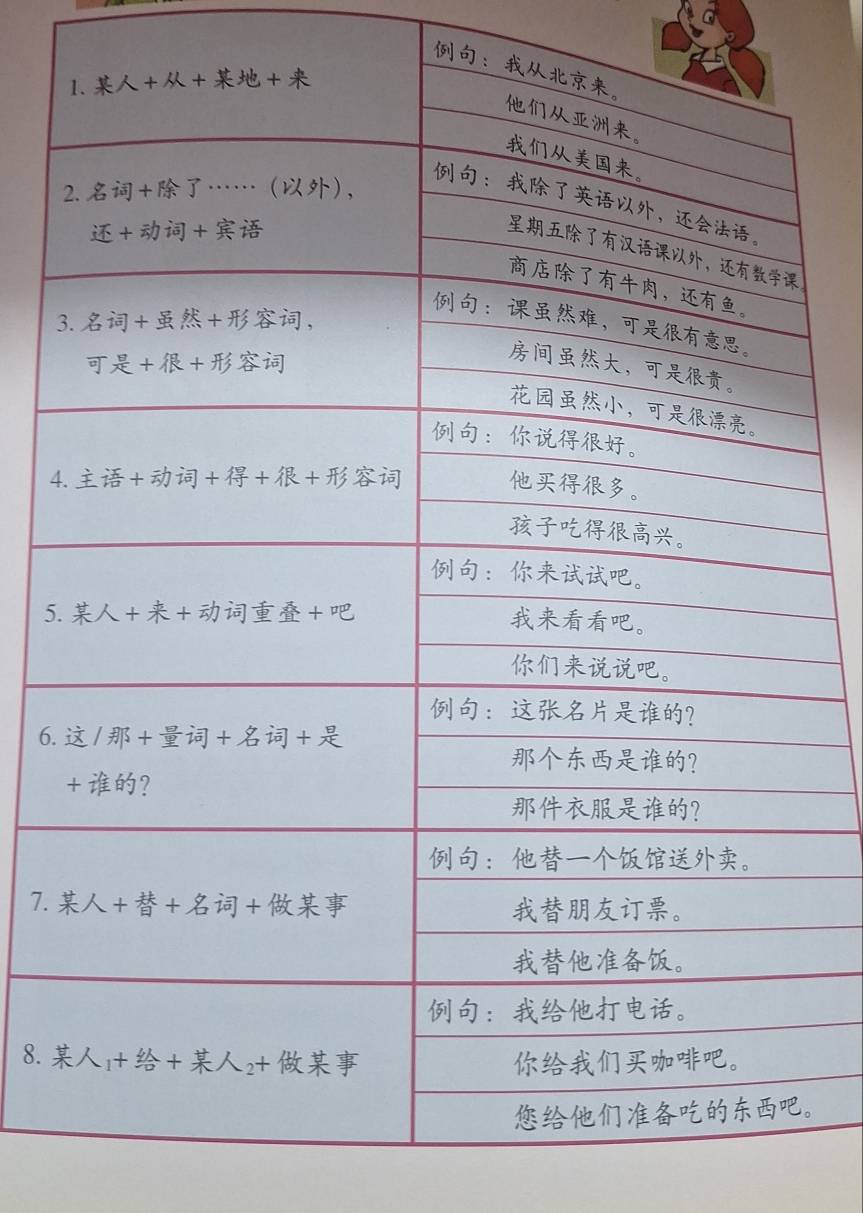 1. 某人+从+某地+来
例句：我从北京来。
他们从亚洲来。
我们从美国来。
2. 名词+除了……（以外），
还+动词+宾语
例句：我除了英语以外，还会法语。
星期五除了有汉语课以外，还有数学课。
商店除了有牛肉，还有鱼。
3. 名词+虽然+形容词，
可是+很+形容词
例句：课虽然难，可是很有意思。
房间虽然大，可是很贵。
花园虽然小，可是很漂亮。
4. 主语+动词+得+很+形容词
例句：你说得很好。
他买得很多。
孩子吃得很高兴。
5. 某人+来+动词重叠+吧
例句：你来试试吧。
我来看看吧。
你们来说说吧。
6. 这/那+量词+名词+是
+谁的？
例句：这张名片是谁的？
那个东西是谁的？
那件衣服是谁的？
7. 某人+替+名词+做某事
例句：他替一个饭馆送外卖。
我替朋友订票。
我替他准备饭。
8. 某人₁+给+某人₂+做某事
例句：我给他打电话。
你给我们买咖啡吧。
您给他们准备吃的东西吧。